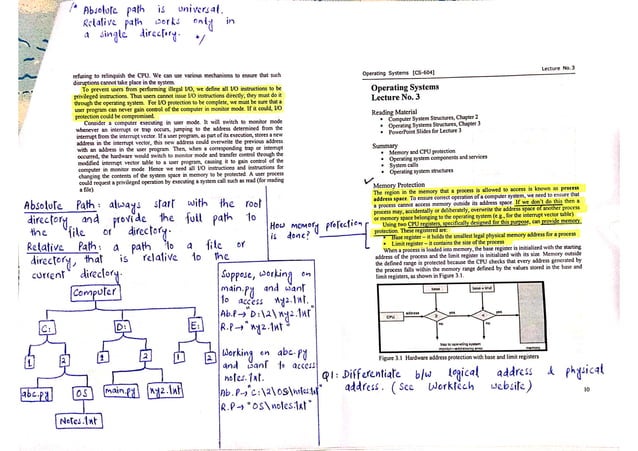 /* Absolute path is universal.
Relative path works only in
a single directory. */
refusing to relinquish the CPU. We can use various mechanisms to ensure that such
disruptions cannot take place in the system.
To prevent users from performing illegal I/O, we define all I/O instructions to be
privileged instructions. Thus users cannot issue I/O instructions directly, they must do it
through the operating system. For I/O protection to be complete, we must be sure that a
user program can never gain control of the computer in monitor mode. If it could, I/O
protection could be compromised.
Consider a computer executing in user mode. It will switch to monitor mode
whenever an interrupt or trap occurs, jumping to the address determined from the
interrupt from the interrupt vector. If a user program, as part of its execution, stores a new
address in the interrupt vector, this new address could overwrite the previous address
with an address in the user program. Then, when a corresponding trap or interrupt
occurred, the hardware would switch to monitor mode and transfer control through the
modified interrupt vector table to a user program, causing it to gain control of the
computer in monitor mode. Hence we need all I/O instructions and instructions for
changing the contents of the system space in memory to be protected. A user process
could request a privileged operation by executing a system call such as read (for reading
a file)
Absolute Path: always start with the root
directory and provide the full path to
the file or directory.
Relative Path: a path to a file or
directory, that is relative to the
current directory.
Computer
C: D: E:
1 2 1 2 1 2
abc.py OS main.py nyz.txt
Notes.txt
How memory protection
is done?
Suppose, working on
main.py and want
to access nyz.txt.
Ab.P→"D:\2\nyz.txt"
R.P→"nyz.txt"
Working on abc.py
and want to access
notes.txt.
Ab.P→"C:\2\OS\notes.txt"
R.P→"OS\notes.txt"
Operating Systems [CS-604] Lecture No.3
Operating Systems
Lecture No. 3
Reading Material
• Computer System Structures, Chapter 2
• Operating Systems Structures, Chapter 3
• PowerPoint Slides for Lecture 3
Summary
• Memory and CPU protection
• Operating system components and services
• System calls
• Operating system structures
Memory Protection
The region in the memory that a process is allowed to access is known as process
address space. To ensure correct operation of a computer system, we need to ensure that
a process cannot access memory outside its address space. If we don't do this then a
process may, accidentally or deliberately, overwrite the address space of another process
or memory space belonging to the operating system (e.g., for the interrupt vector table).
Using two CPU registers, specifically designed for this purpose, can provide memory
protection. These registered are:
• Base register – it holds the smallest legal physical memory address for a process
• Limit register – it contains the size of the process
When a process is loaded into memory, the base register is initialized with the starting
address of the process and the limit register is initialized with its size. Memory outside
the defined range is protected because the CPU checks that every address generated by
the process falls within the memory range defined by the values stored in the base and
limit registers, as shown in Figure 3.1.
base base + limit
CPU address ≥ yes < yes
no no
trap to operating system
monitor—addressing error
memory
Figure 3.1 Hardware address protection with base and limit registers
Q1: Differentiate b/w logical address & physical
address. (See Worktech website)
10